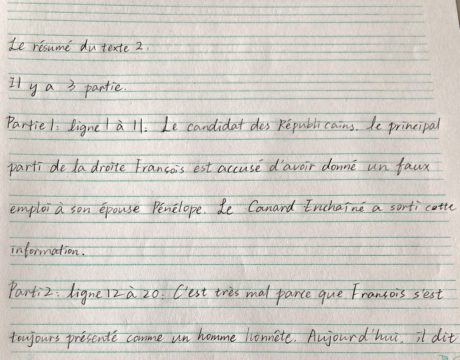 Le résumé du texte 2.
Il y a 3 partie.
Partie 1: ligne 1 à 11. Le candidat des Républicains. le principal
parti de la droite François est accusé d'avoir donné un faux
emploi à son épouse Pénélope. Le Canard Enchaîné a sorti cette
information.
Parti 2: ligne 12 à 20. C'est très mal parce que François s'est
toujours présenté comme un homme honnête. Aujourd'hui, il dit